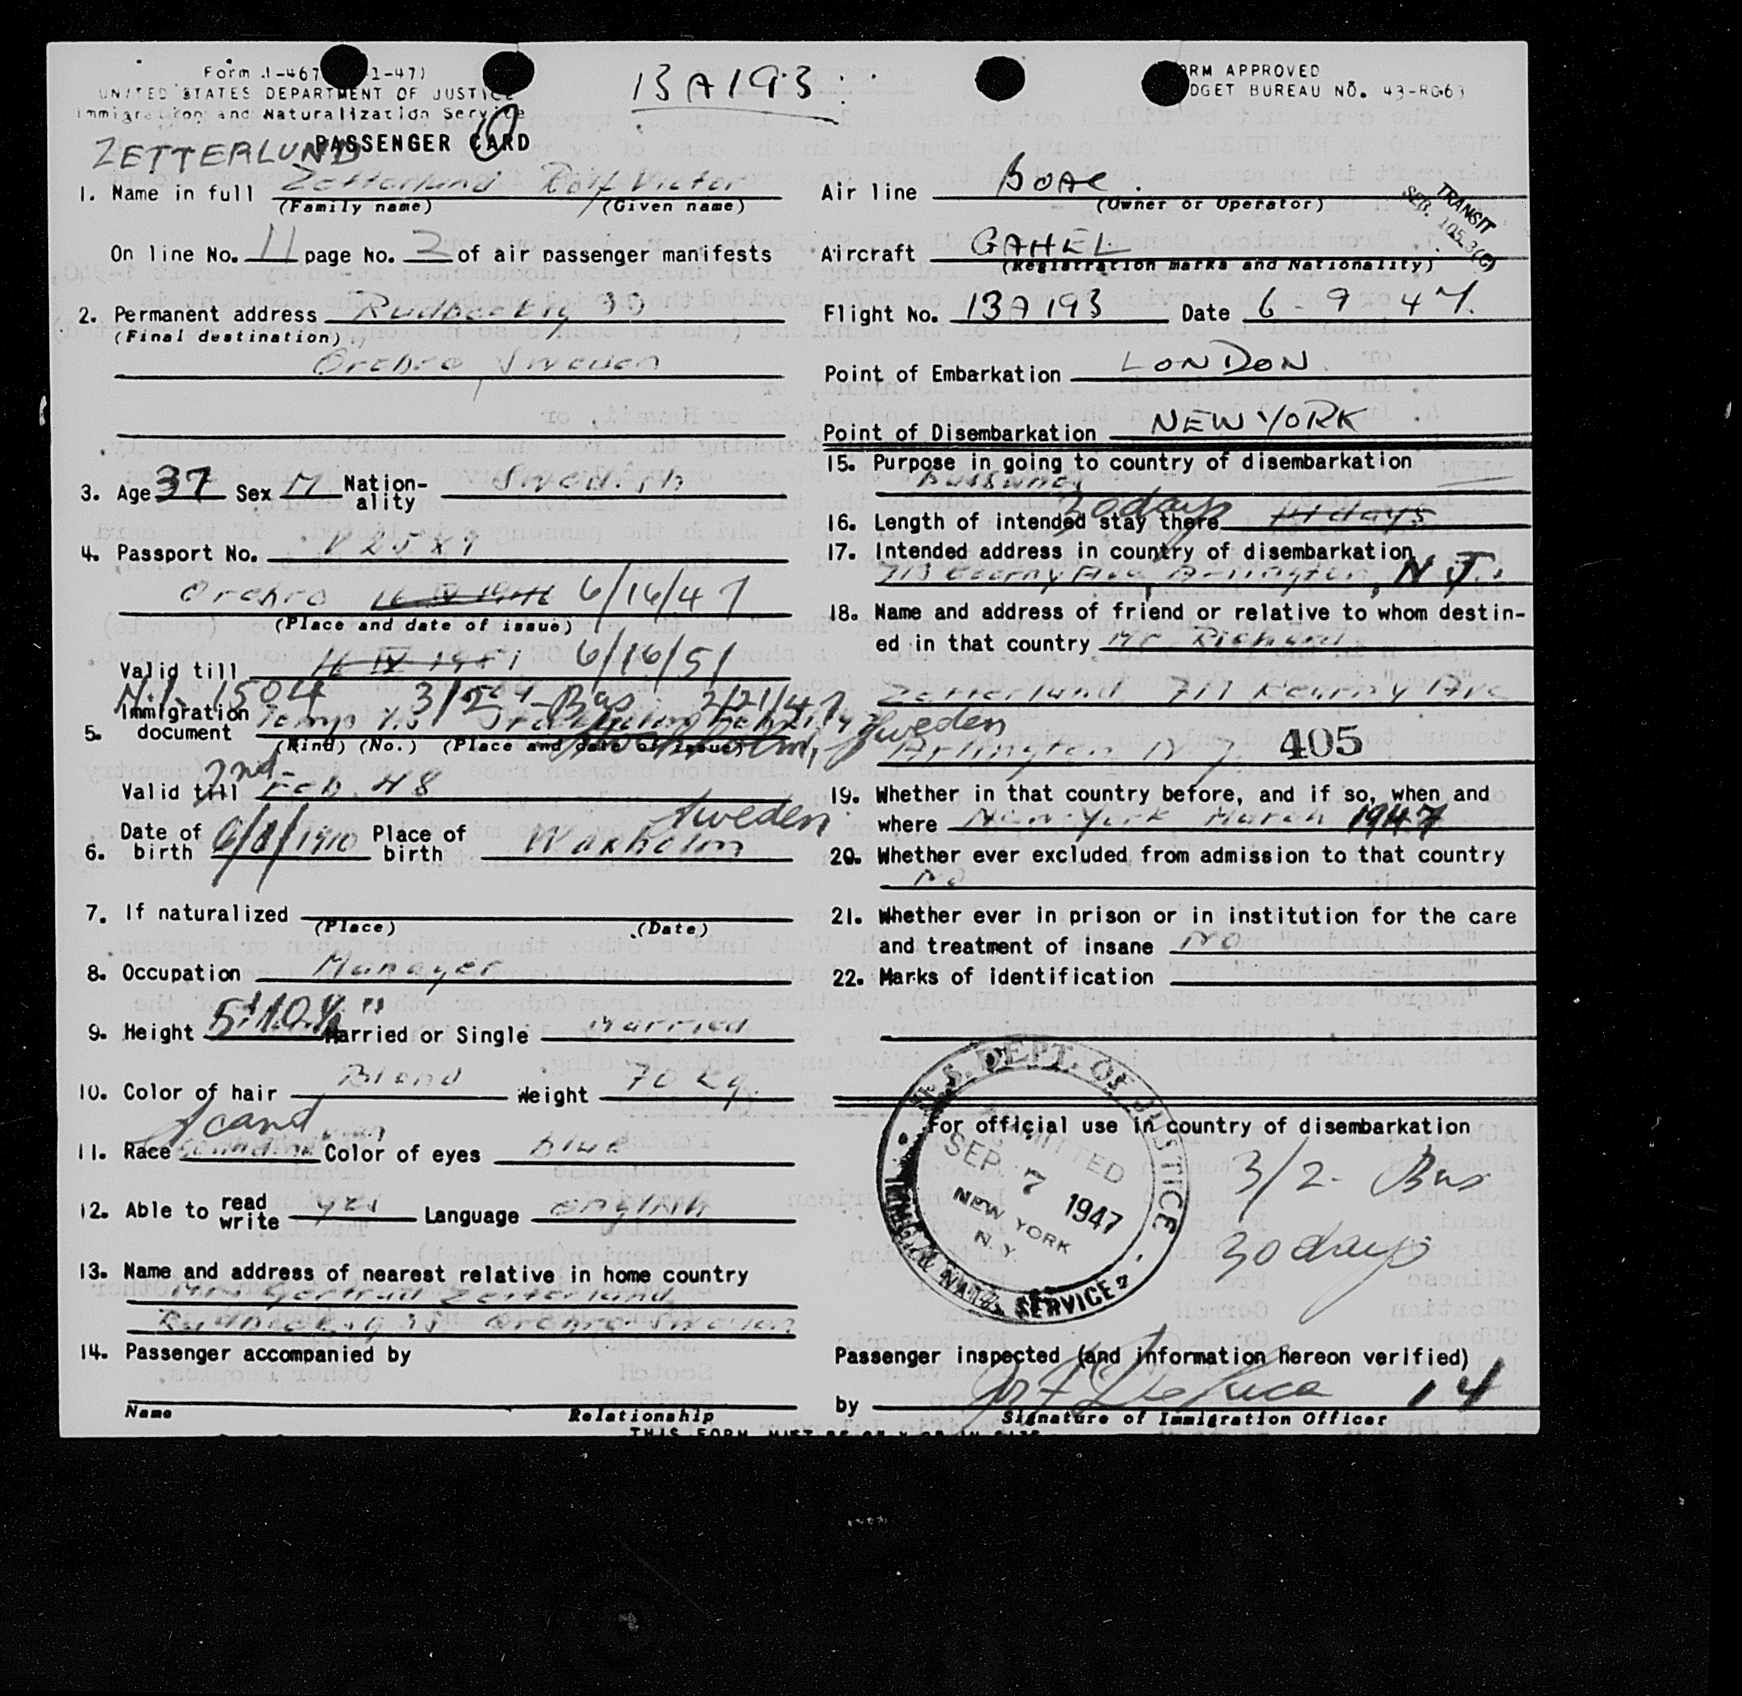 Form I-467 1-47)
UNITED STATES DEPARTMENT OF JUSTICE
Immigration and Naturalization Service
13A193
FORM APPROVED
BUDGET BUREAU NO. 43-R063
ZETTERLUND
PASSENGER CARD
1. Name in full Zetterlund Rolf Victor
(Family name) (Given name)
On line No. 11 page No. 2 of air passenger manifests
2. Permanent address
(Final destination)
Orebro, Sweden
3. Age 37 Sex M Nationality Swedish
4. Passport No.
Orebro 6/16/47
(Place and date of issue)
Valid till 6/16/51
3/2 Bus 2/21/47
5. Immigration document Sweden
(Kind) (No.) (Place and date of issue)
Valid till 2nd Feb. 48
6. Date of birth 6/8/1910 Place of birth Waxholm Sweden
7. If naturalized
(Place) (Date)
8. Occupation Manager
9. Height Married or Single Married
10. Color of hair Blond Weight 70 kg.
11. Race Scand Color of eyes blue
12. Able to read write yes Language english
13. Name and address of nearest relative in home country
Mrs Gertrud Zetterlund
Orebro Sweden
14. Passenger accompanied by
Name Relationship
Air line BOAC.
(Owner or Operator)
TRANSIT
SEC. 105.3(C)
Aircraft GAHEL
(Registration marks and Nationality)
Flight No. 13A193 Date 6-9 47.
Point of Embarkation LONDON
Point of Disembarkation NEW YORK
15. Purpose in going to country of disembarkation
Bussines
16. Length of intended stay there 30 days 14 days
17. Intended address in country of disembarkation
713 Kearny Ave, Arlington, N.J.
18. Name and address of friend or relative to whom destin-
ed in that country Mr Richard
Zetterlund 717 Kearny Ave
Arlington N.J. 405
19. Whether in that country before, and if so, when and
where New York, March 1947
20. Whether ever excluded from admission to that country
No
21. Whether ever in prison or in institution for the care
and treatment of insane No
22. Marks of identification
For official use in country of disembarkation
U.S. DEPT. OF JUSTICE
ADMITTED
SEP 7 1947
NEW YORK
N.Y.
IMMIG. & NATZ. SERVICE
3/2- Bus
30 days
Passenger inspected (and information hereon verified)
by 14
Signature of Immigration Officer